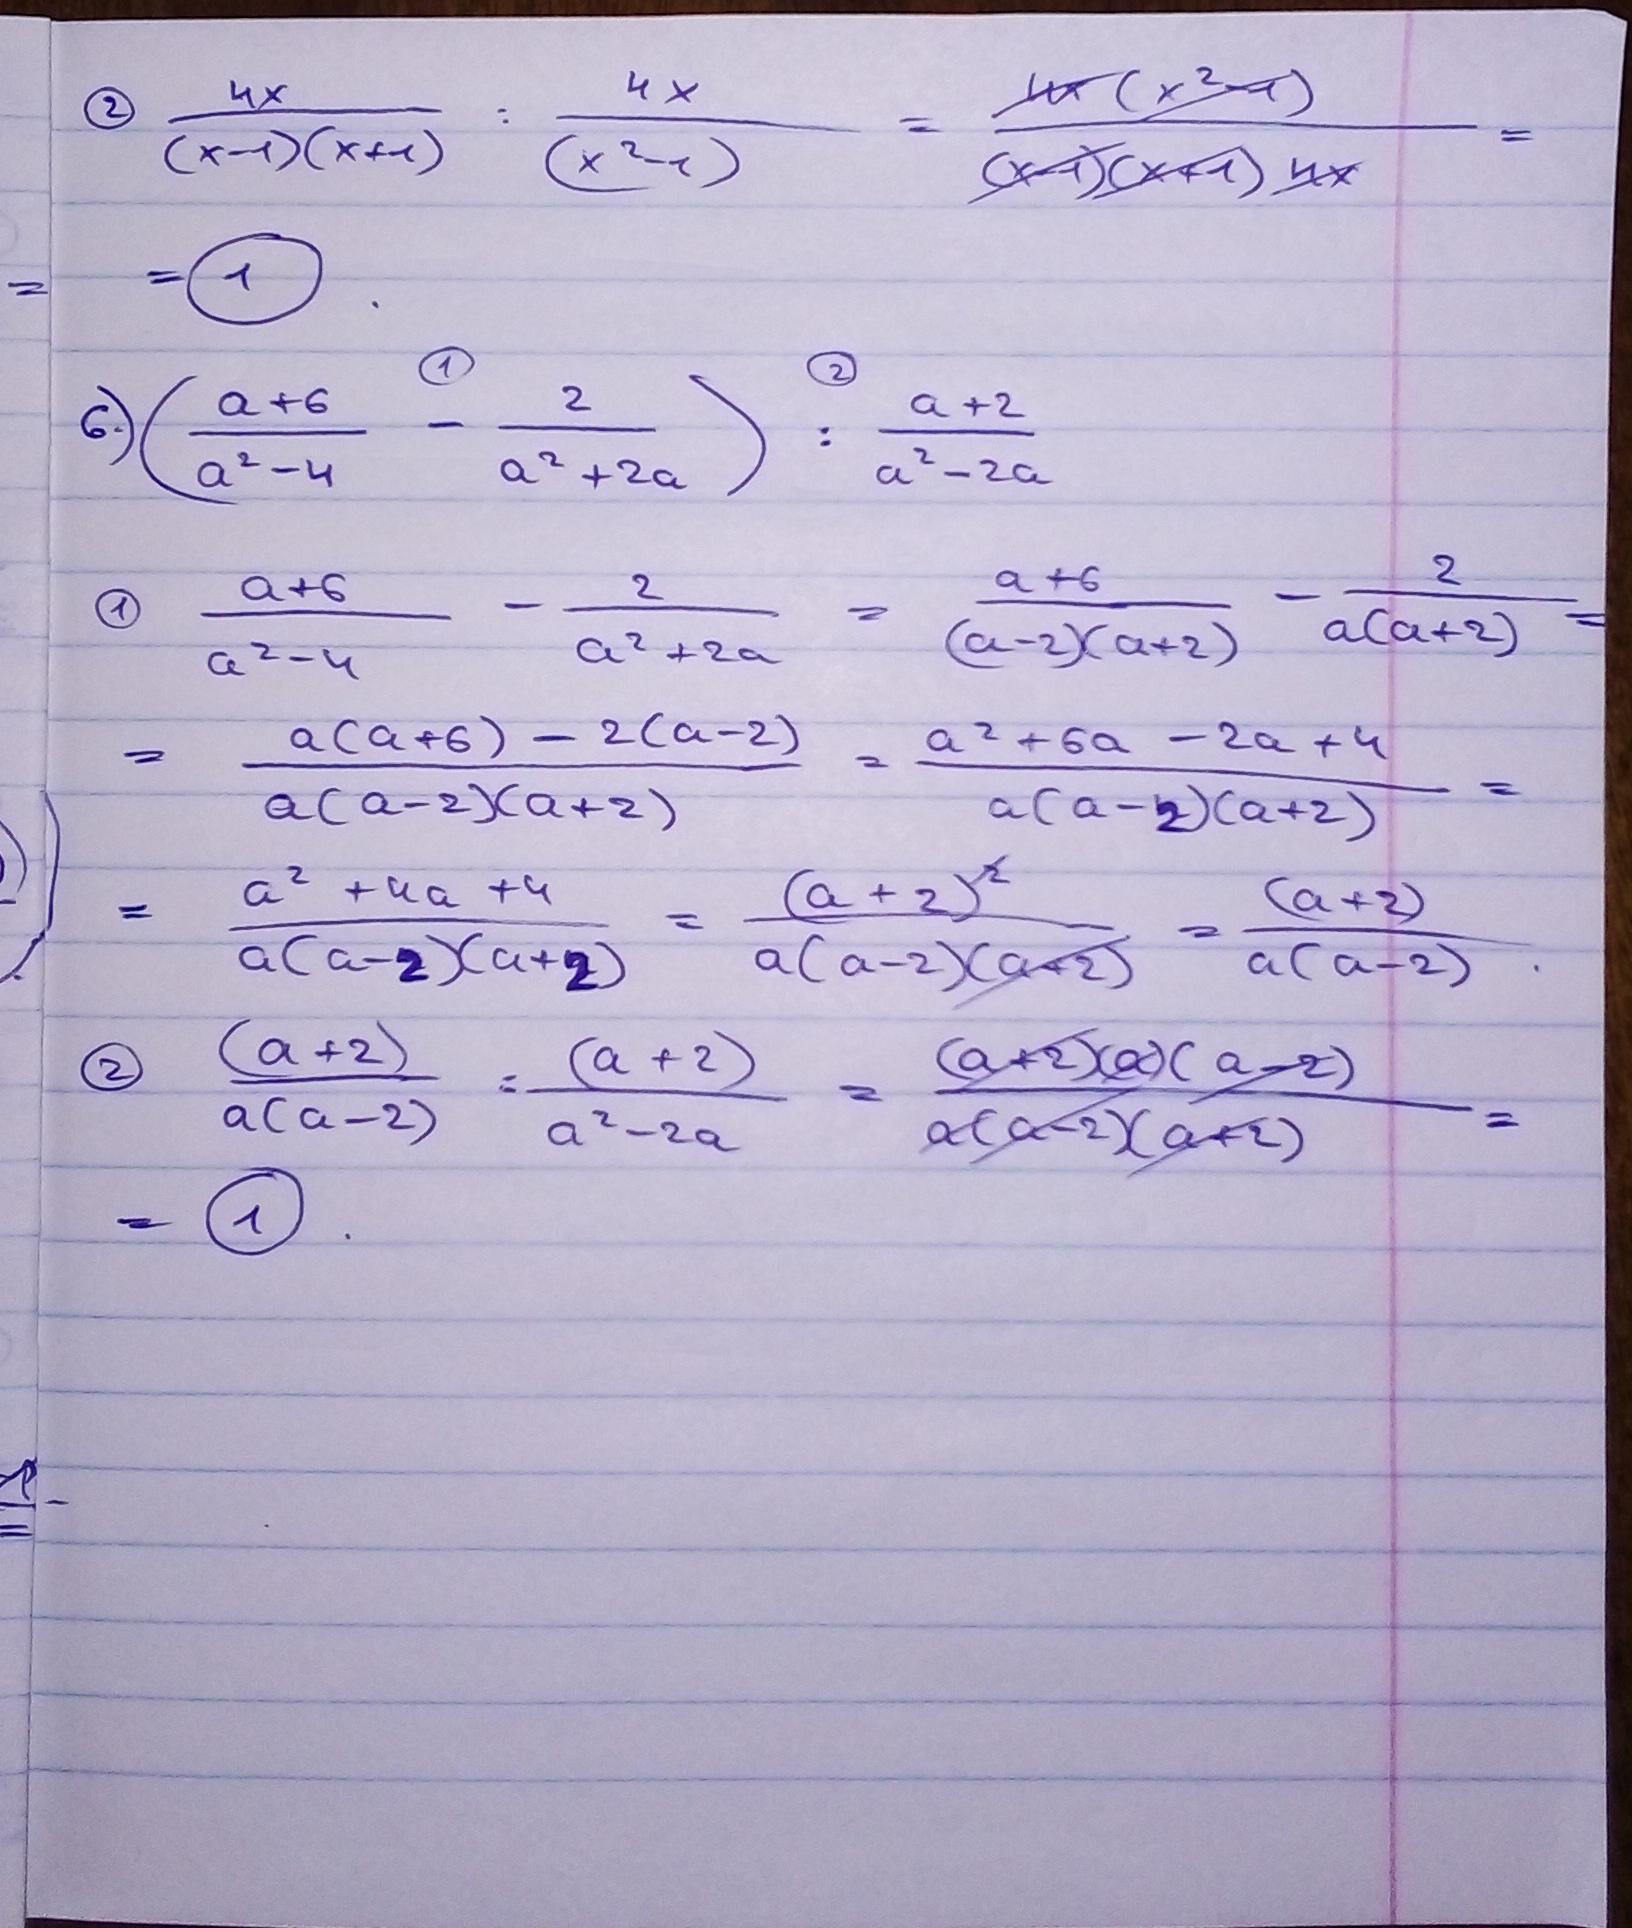 ② 4x/((x-1)(x+1)) : 4x/(x²-1) = 4x(x²-1)/((x-1)(x+1)4x) =
= 1.
6.) ((a+6)/(a²-4) - 2/(a²+2a)) : (a+2)/(a²-2a)
① (a+6)/(a²-4) - 2/(a²+2a) = (a+6)/((a-2)(a+2)) - 2/(a(a+2)) =
= (a(a+6)-2(a-2))/(a(a-2)(a+2)) = (a²+6a-2a+4)/(a(a-2)(a+2)) =
= (a²+4a+4)/(a(a-2)(a+2)) = (a+2)²/(a(a-2)(a+2)) = (a+2)/(a(a-2)).
② (a+2)/(a(a-2)) : (a+2)/(a²-2a) = (a+2)(a)(a-2)/(a(a-2)(a+2)) =
= 1.